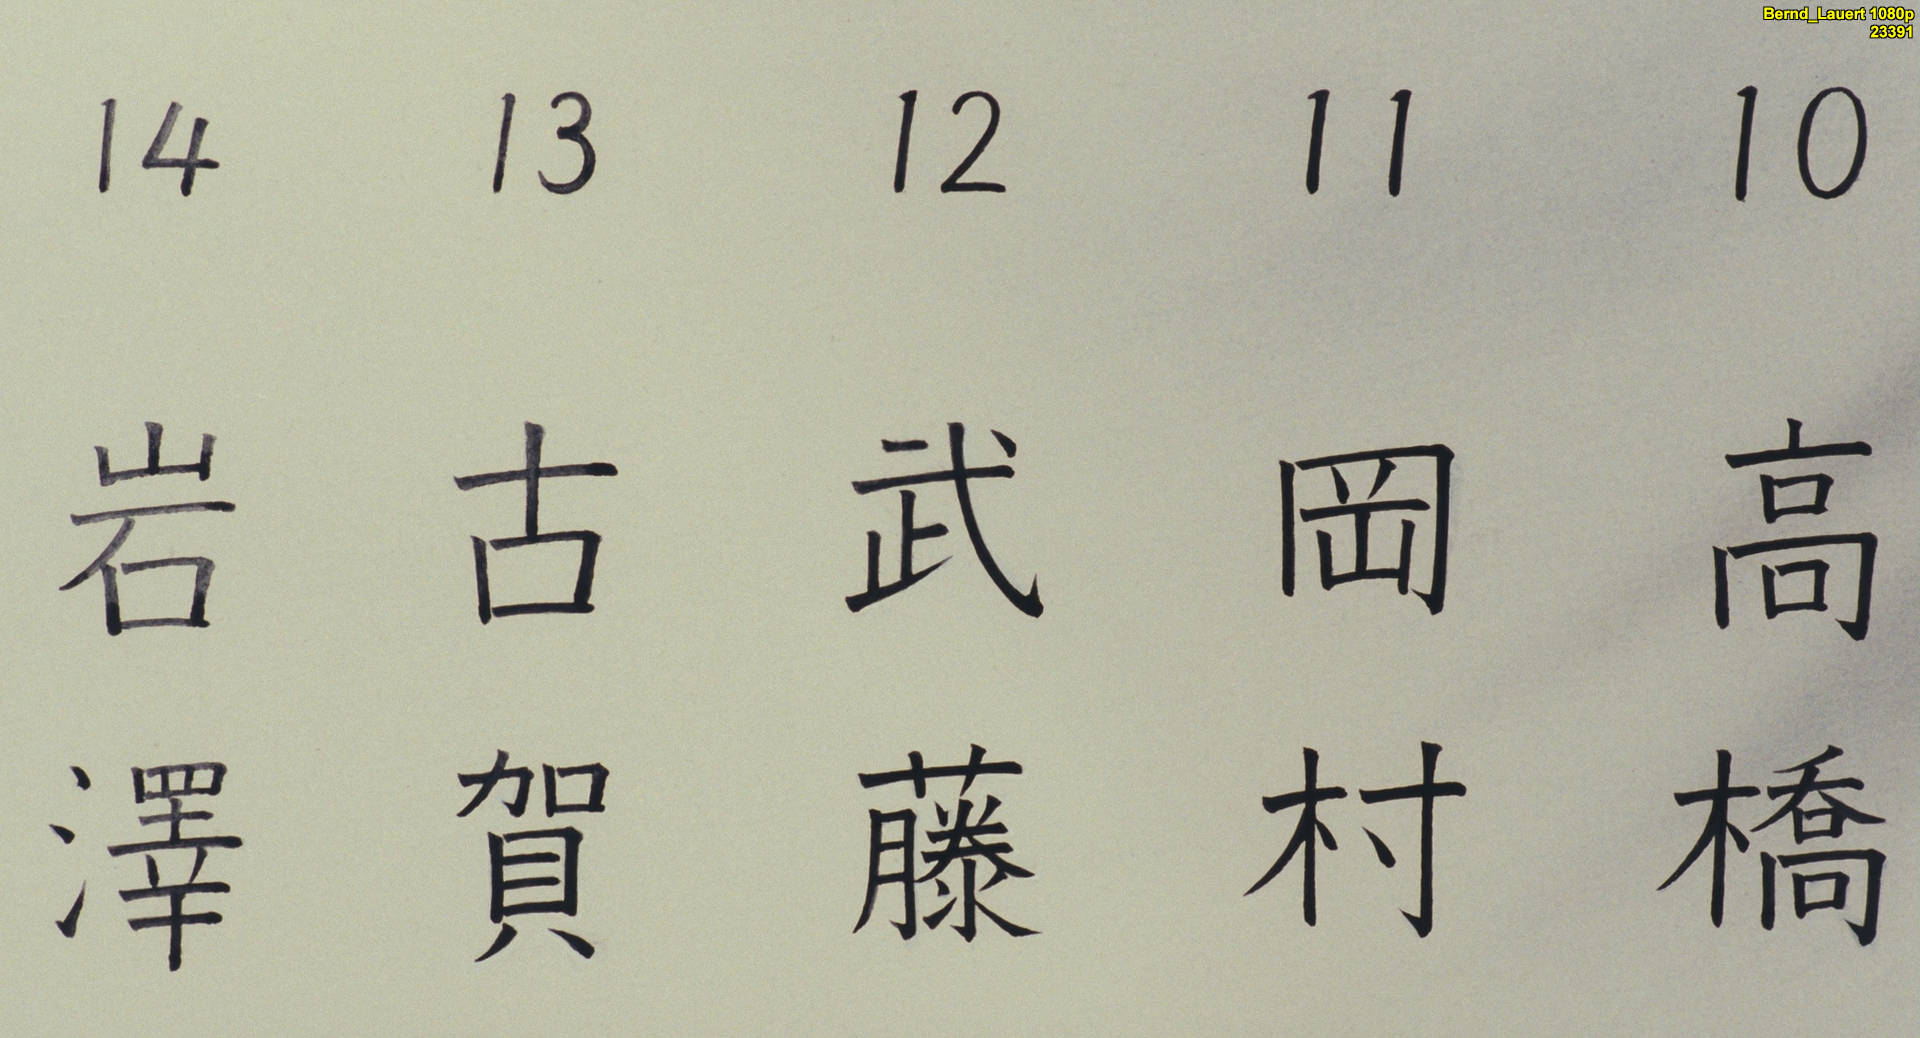 Bernd_Lauert 1080p
23391
10 高橋
11 岡村
12 武藤
13 古賀
14 岩澤